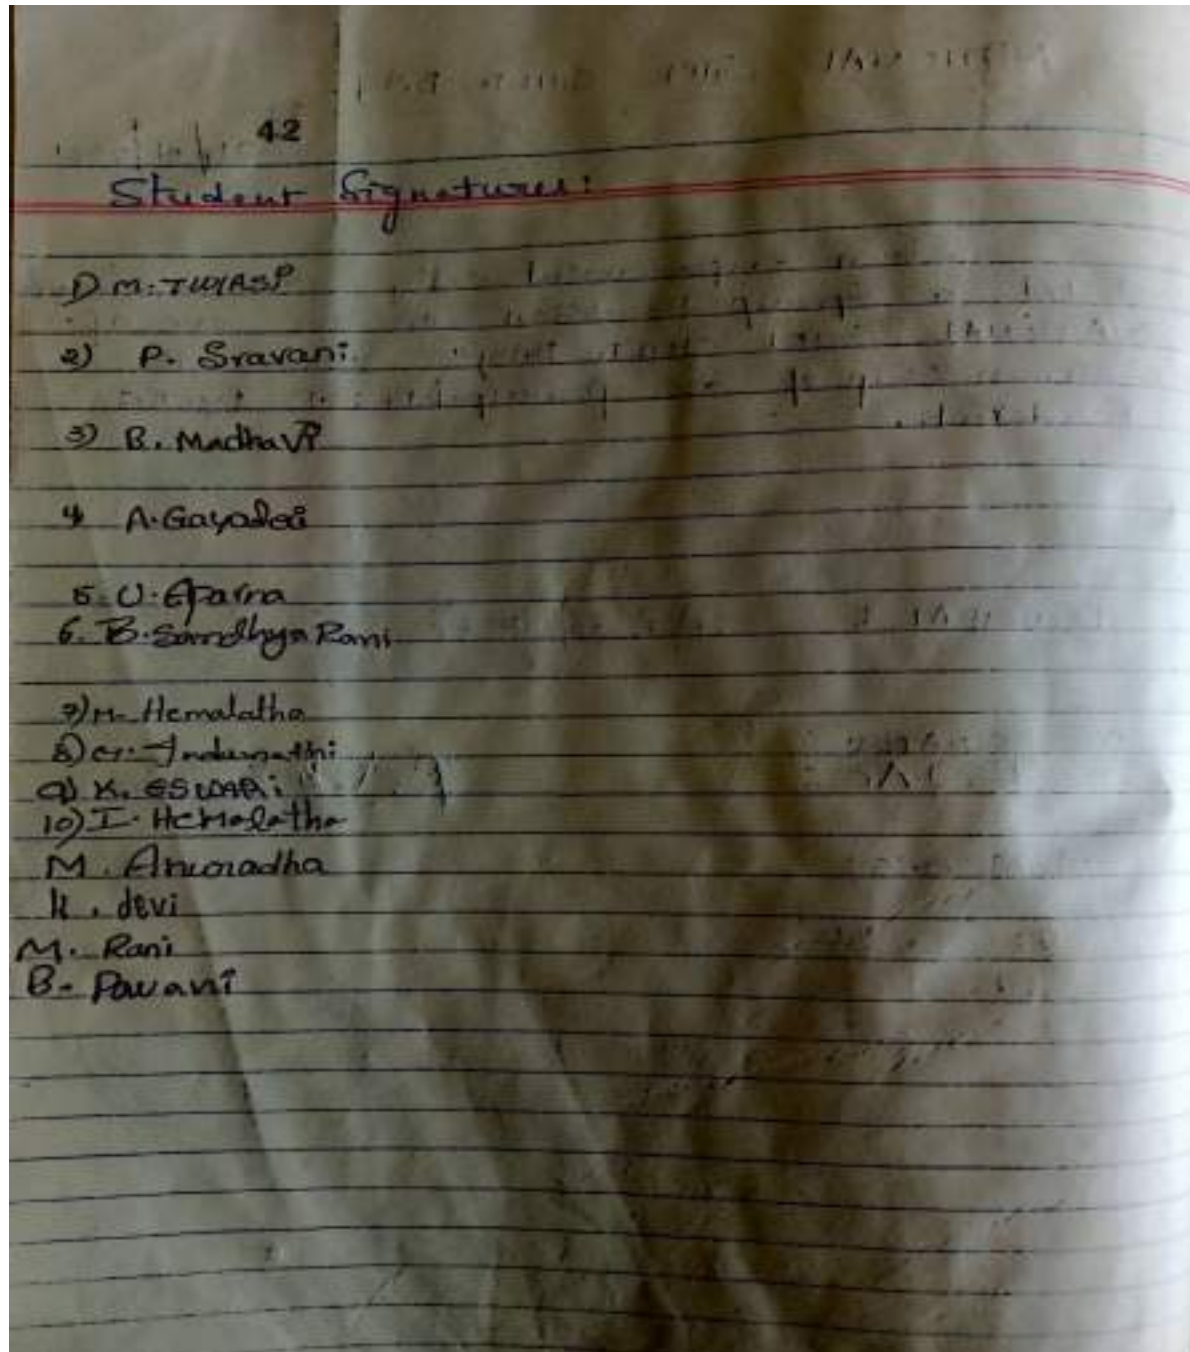 42
Student Signatures:
1) M. TULASI
2) P. Sravani
3) B. Madhavi
4 A. Gayatri
5. U. Aparna
6. B. Sandhya Rani
7) M. Hemalatha
8) G. Indumathi
9) K. ESWARi
10) I. Hemalatha
M. Anuradha
K. devi
M. Rani
B. Pavani